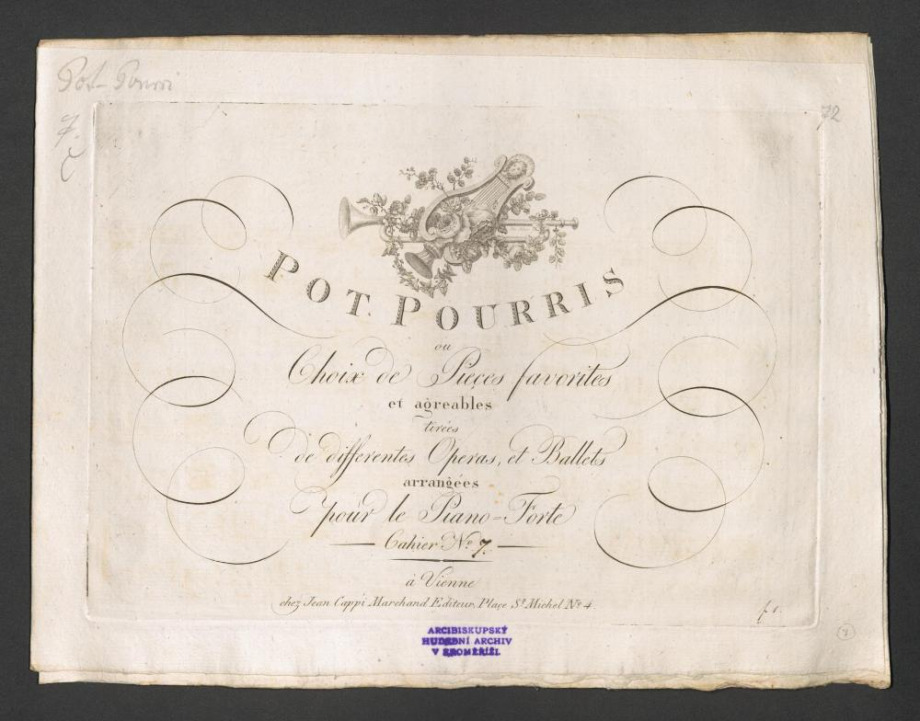 Pot-Pourri
7.
72
POT. POURRIS
ou
Choix de Pieçes favorites
et agreables
tirées
de differentes Operas, et Ballets
arrangées
pour le Piano-Forte
Cahier No 7.
à Vienne
chez Jean Cappi Marchand Editeur, Plaçe St Michel No 4.
f 1.
7
ARCIBISKUPSKÝ
HUDEBNÍ ARCHIV
V KROMĚŘÍŽI.